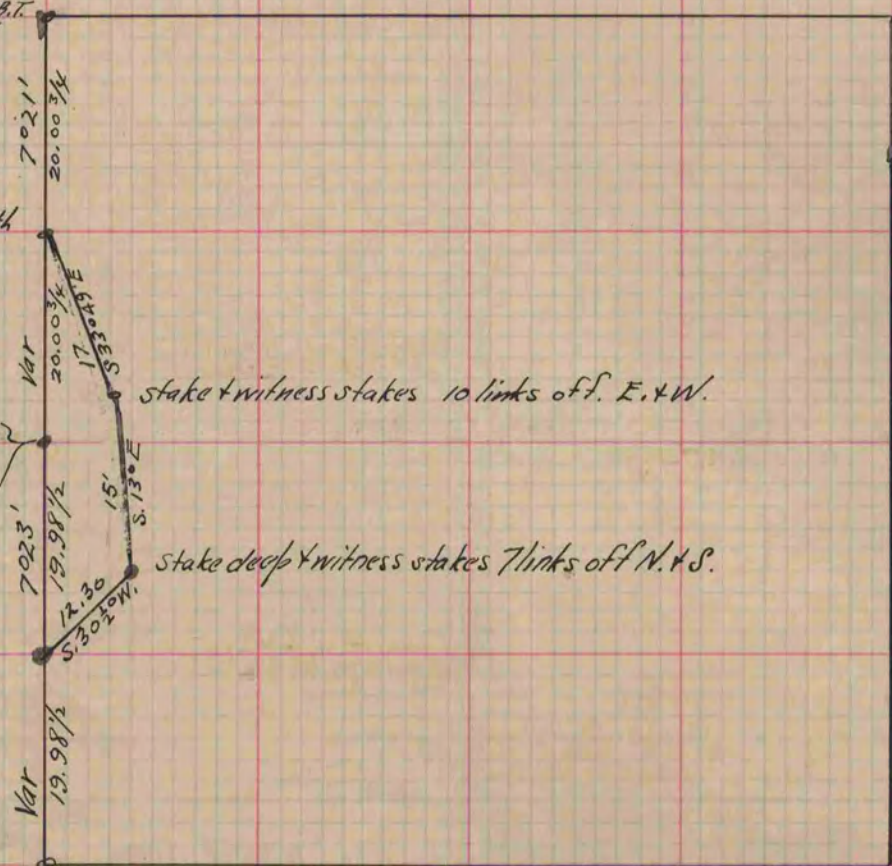 B.T.
7°21'
20.00 3/4
th
Var
20.00 3/4
17
S 33°49' E
stake & witness stakes 10 links off. E. & W.
7°23'
19.98 1/2
15'
S. 13° E
stake deep & witness stakes 7 links off N. & S.
12.30
S. 30 1/2° W.
Var
19.98 1/2